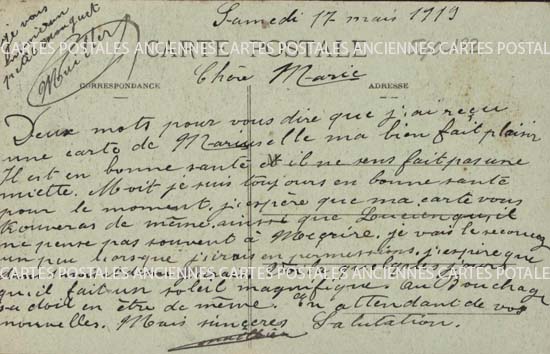 Samedi 17 mais 1919
je vous
CARTE POSTALE
Chère Marie
CORRESPONDANCE
ADRESSE
Deux mots pour vous dire que j'ai reçu
une carte de Marius elle ma bien fait plaisir
Il est en bonne santé et il ne sens fait pas une
miette. Moit je suis toujours en bonne santé
pour le moment, j'espère que ma carte vous
trouveras de même. ainsi que Lucien qu'il
ne pense pas souvent à Mecrire. je vais le
un peu lorsque j'irais en permession. j'espire que
qu'il fait un soleil magnifique. au Bouchage
sa doit en être de même. en attendant de vos
nouvelles. Mais sincères Salutation.
CARTES POSTALES ANCIENNES CARTES POSTALES ANCIENNES